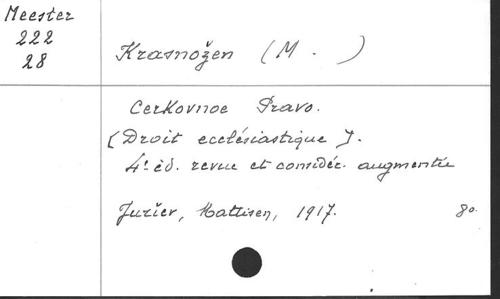 Meester
222
28
Krasnožen (M. )
Cerkovnoe Pravo.
[Droit ecclésiastique].
4e éd. revue et considér. augmentée
Jur'ev, Mattisen, 1917. 8o.